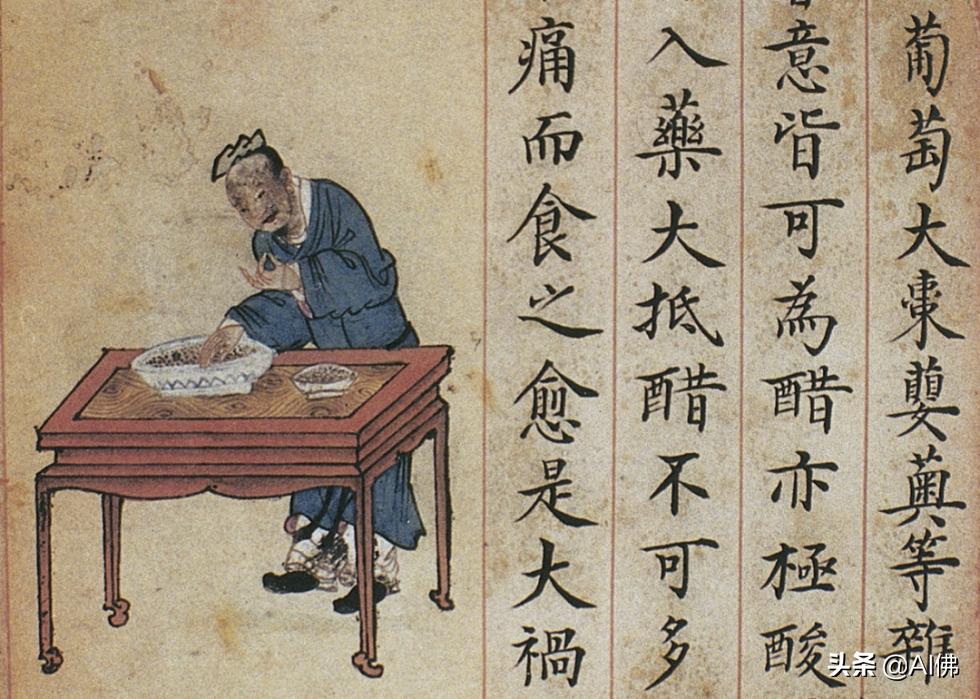 葡萄大棗蘡薁等雜
意皆可為醋亦極酸
入藥大抵醋不可多
痛而食之愈是大禍
头条 @AI佛